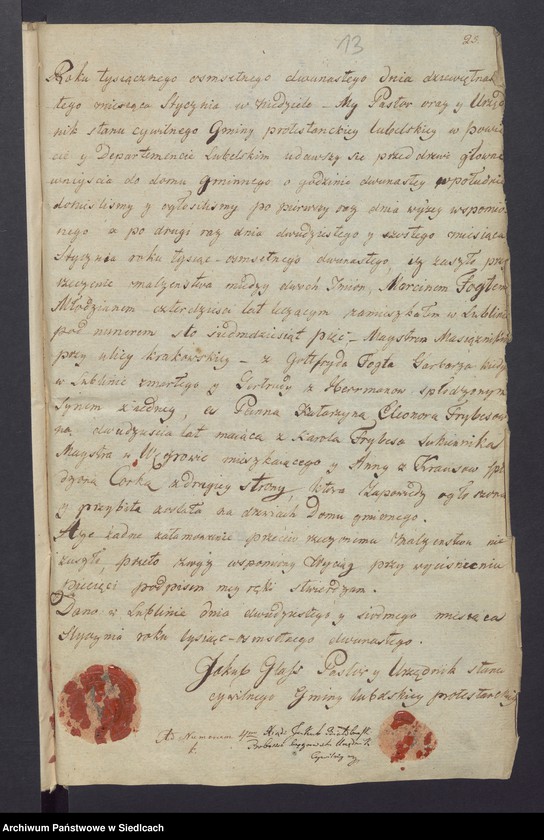 13 23.
Roku tysiącznego osmsetnego dwunastego dnia dziewiętnas
tego miesiąca Stycznia w Niedziele – My Pastor oraz y Urzęd
nik stanu cywilnego Gminy protestanckiey lubelskiey w powie
cie y Departemencie Lubelskim udawszy się przed drzwi głowne
wniyścia do domu Gminnego o godzinie dwunastey w południe
donieślismy y ogłosilismy po pierwszy raz dnia wyżey wspomnio
nego a po drugi raz dnia dwudziestego y szostego miesiąca
Stycznia roku tysiąc-osmsetnego dwunastego, iż zaszło przy
rzeczenie małżenstwa między dwoch Imion, Marcinem Fogtem
Młodzianem czterdziesci lat liczącym zamieszkałem w Lublinie
pod numerem sto siedmdziesiąt pięć – Magstrem Masiarznikiem
przy ulicy krakowskiey – z Gottfryda Fogta Garbarza
w Lublinie zmarłego y Gertrudy z Herrmanow spłodzonym
Synem z iedney, a Panna Katarzyna Eleonora Frybesow
na dwudziescia lat maiąca z Karola Frybesa Sukiennika
Magstra w Węgrowie mieszkaiącego y Anny z Krausow spło
dzona Corka z drugiey strony, ktora zapowiedz ogłoszona
y przybita została na drzwiach Domu gminnego.
A że żadne zatamowanie przeciw rzeczonemu Małżenstwu nie
zaszło, przeto zwyż wspomniony Wyciąg przy wycisnieniu
pieczęci podpisem mey ręki stwierdzam.
Dano w Lublinie dnia dwudziestego y siodmego miesiąca
Stycznia roku tysiąc-osmsetnego dwunastego.
Jakub Glass Pastor y Urzędnik stanu
cywilnego Gminy lubelskiey protestanckiey
Ad Numerum 4tum
Archiwum Państwowe w Siedlcach